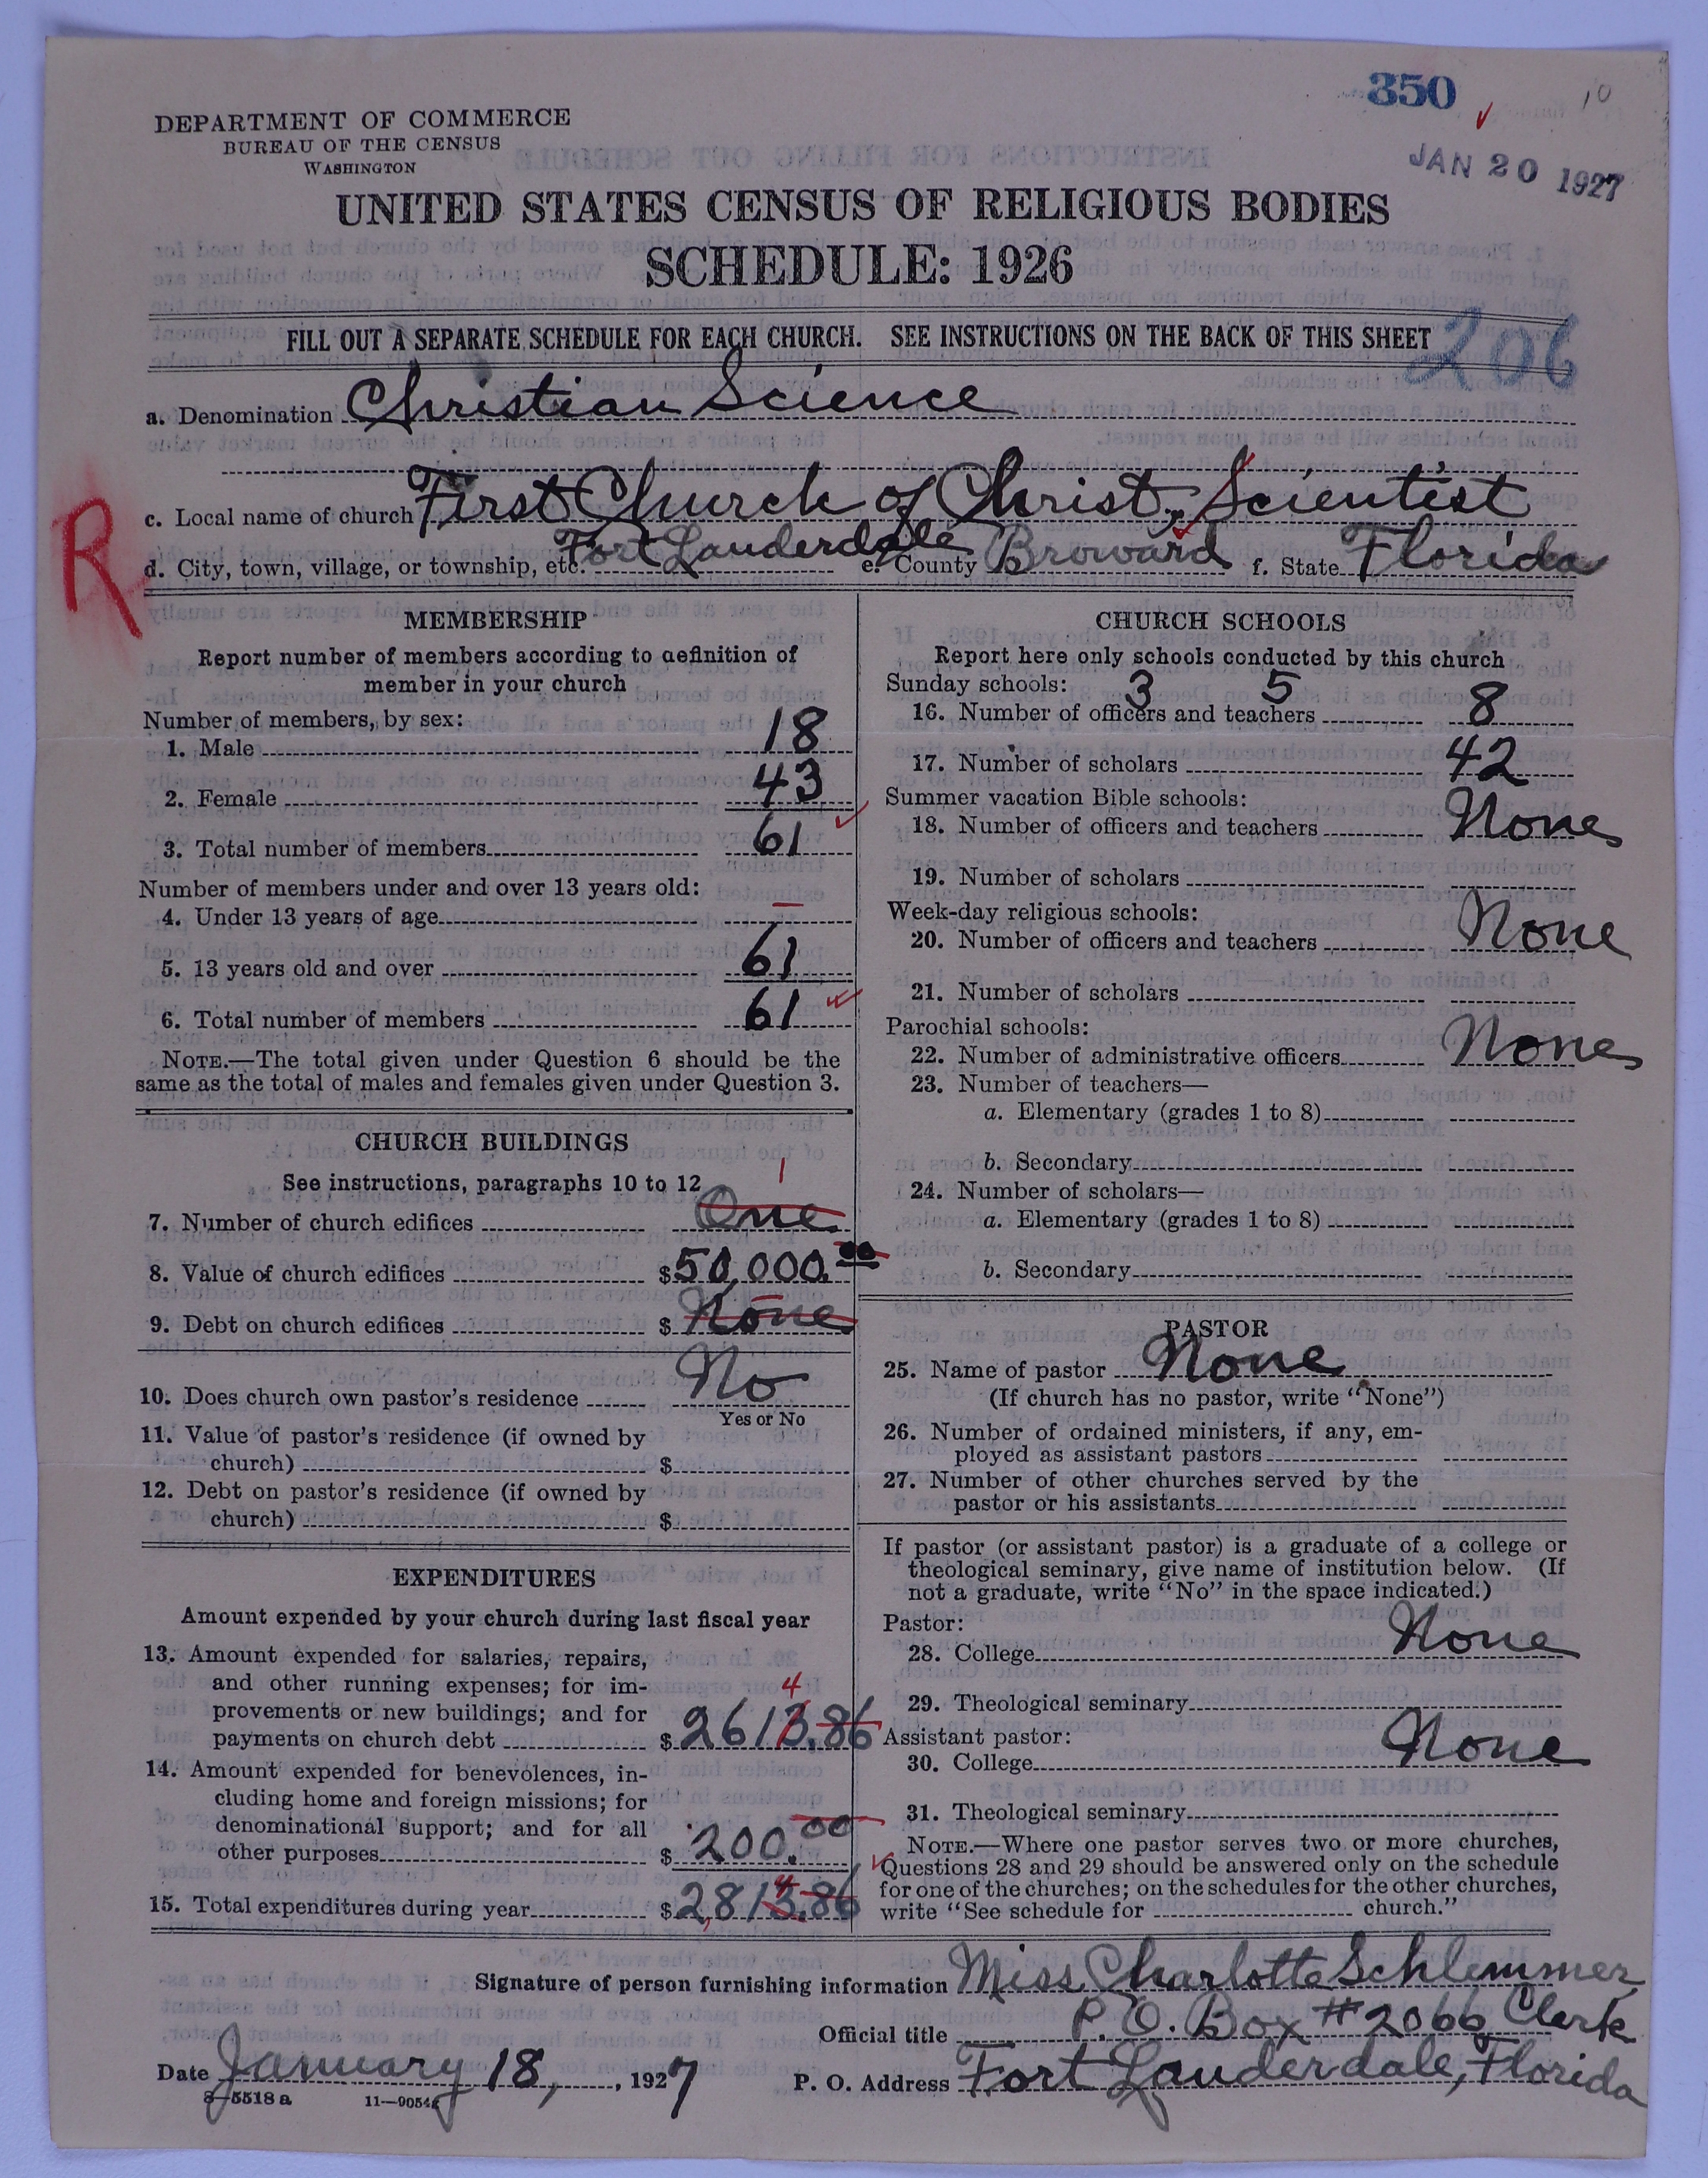 350
10
DEPARTMENT OF COMMERCE
BUREAU OF THE CENSUS
WASHINGTON
JAN 20 1927
UNITED STATES CENSUS OF RELIGIOUS BODIES
SCHEDULE: 1926
FILL OUT A SEPARATE SCHEDULE FOR EACH CHURCH. SEE INSTRUCTIONS ON THE BACK OF THIS SHEET
206
a. Denomination Christian Science
R
c. Local name of church First Church of Christ, Scientist
d. City, town, village, or township, etc. Fort Lauderdale e. County Broward f. State Florida
MEMBERSHIP
Report number of members according to definition of
member in your church
Number of members, by sex:
1. Male 18
2. Female 43
3. Total number of members 61
Number of members under and over 13 years old:
4. Under 13 years of age —
5. 13 years old and over 61
6. Total number of members 61
NOTE.—The total given under Question 6 should be the
same as the total of males and females given under Question 3.
CHURCH BUILDINGS
See instructions, paragraphs 10 to 12
1
7. Number of church edifices One
8. Value of church edifices $50,000.00
9. Debt on church edifices $ None
10. Does church own pastor's residence No
Yes or No
11. Value of pastor's residence (if owned by
church) $
12. Debt on pastor's residence (if owned by
church) $
EXPENDITURES
Amount expended by your church during last fiscal year
13. Amount expended for salaries, repairs,
and other running expenses; for im-
4
provements or new buildings; and for
payments on church debt $2613.86
14. Amount expended for benevolences, in-
cluding home and foreign missions; for
denominational support; and for all
other purposes $200.00
4
15. Total expenditures during year $2,813.86
CHURCH SCHOOLS
Report here only schools conducted by this church
Sunday schools: 3 5
16. Number of officers and teachers 8
17. Number of scholars 42
Summer vacation Bible schools:
18. Number of officers and teachers None
19. Number of scholars
Week-day religious schools:
20. Number of officers and teachers None
21. Number of scholars
Parochial schools:
22. Number of administrative officers None
23. Number of teachers—
a. Elementary (grades 1 to 8)
b. Secondary
24. Number of scholars—
a. Elementary (grades 1 to 8)
b. Secondary
PASTOR
25. Name of pastor None
(If church has no pastor, write "None")
26. Number of ordained ministers, if any, em-
ployed as assistant pastors
27. Number of other churches served by the
pastor or his assistants
If pastor (or assistant pastor) is a graduate of a college or
theological seminary, give name of institution below. (If
not a graduate, write "No" in the space indicated.)
Pastor:
28. College None
29. Theological seminary
Assistant pastor:
30. College None
31. Theological seminary
NOTE.—Where one pastor serves two or more churches,
Questions 28 and 29 should be answered only on the schedule
for one of the churches; on the schedules for the other churches,
write "See schedule for church."
Signature of person furnishing information Miss Charlotte Schlemmer
Official title P. O. Box #2066 Clerk
Date January 18, 1927 P. O. Address Fort Lauderdale, Florida
8—5518 a 11—9054